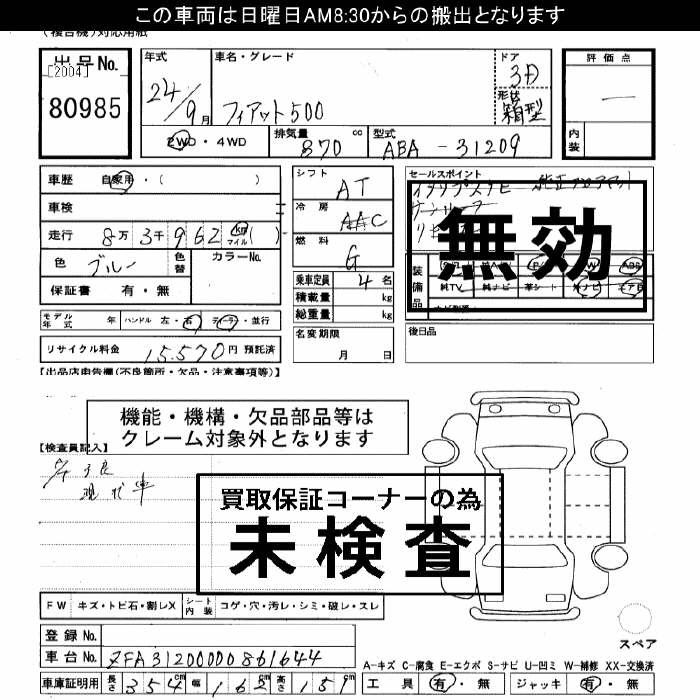 この車両は日曜日AM8:30からの搬出となります
(複合機)対応用紙
出品No. [2004] 80985
年式 24/9月
車名・グレード フィアット500
ドア 3D
形状 箱型
評価点 —
内装
2WD・4WD
排気量 870 cc
型式 ABA-31209
車歴 自家用・( )
車検
走行 8万3千962 km マイル ( )
色 ブルー 色替 カラーNo.
保証書 有・無
シフト AT
冷房 AAC
燃料 G
乗車定員 4名
積載量 kg
総重量 kg
セールスポイント
無効
装備品
純TV 純ナビ 革シート 外ナビ エアB
モデル年式 年 ハンドル 左・右 ディーラー・並行
名変期限 月 日
後日品
リサイクル料金 15,570円 預託済
【出品店申告欄(不良箇所・欠品・注意事項等)】
機能・機構・欠品部品等は
クレーム対象外となります
【検査員記入】
現状車
買取保証コーナーの為
未検査
FW キズ・トビ石・割レX シート内装 コゲ・穴・汚レ・シミ・破レ・スレ
スペア
登録No.
車台No. ZFA3120000J861644
A-キズ C-腐食 E-エクボ S-サビ U-凹ミ W-補修 XX-交換済
車庫証明用 長さ 354cm 幅 162cm 高さ 151cm
工具 有・無 ジャッキ 有・無